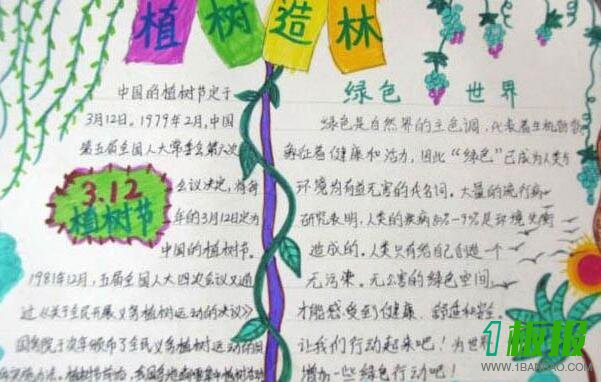 植树造林
中国的植树节定于
3月12日。1979年2月,中国
第五届全国人大常委会第六次
会议决定,将每
年的3月12日定为
中国的植树节。
3.12
植树节
1981年12月,五届全国人大四次会议又通
过《关于全民开展义务植树运动的决议》
国务院于次年颁布了全民义务植树运动的
绿色世界
绿色是自然界的主色调,代表着生机勃勃
象征着健康和活力,因此“绿色”已成为人类与
环境为有益无害的代名词。大量的流行病
研究表明,人类的疾病
是环境失衡
造成的。人类只有给自己创造一个
无污染。无公害的绿色空间
才能感受到健康、舒适和安全。
让我们行动起来吧!为世界
增加一些绿色行动吧!
1板报
WWW.1BANBAO.COM